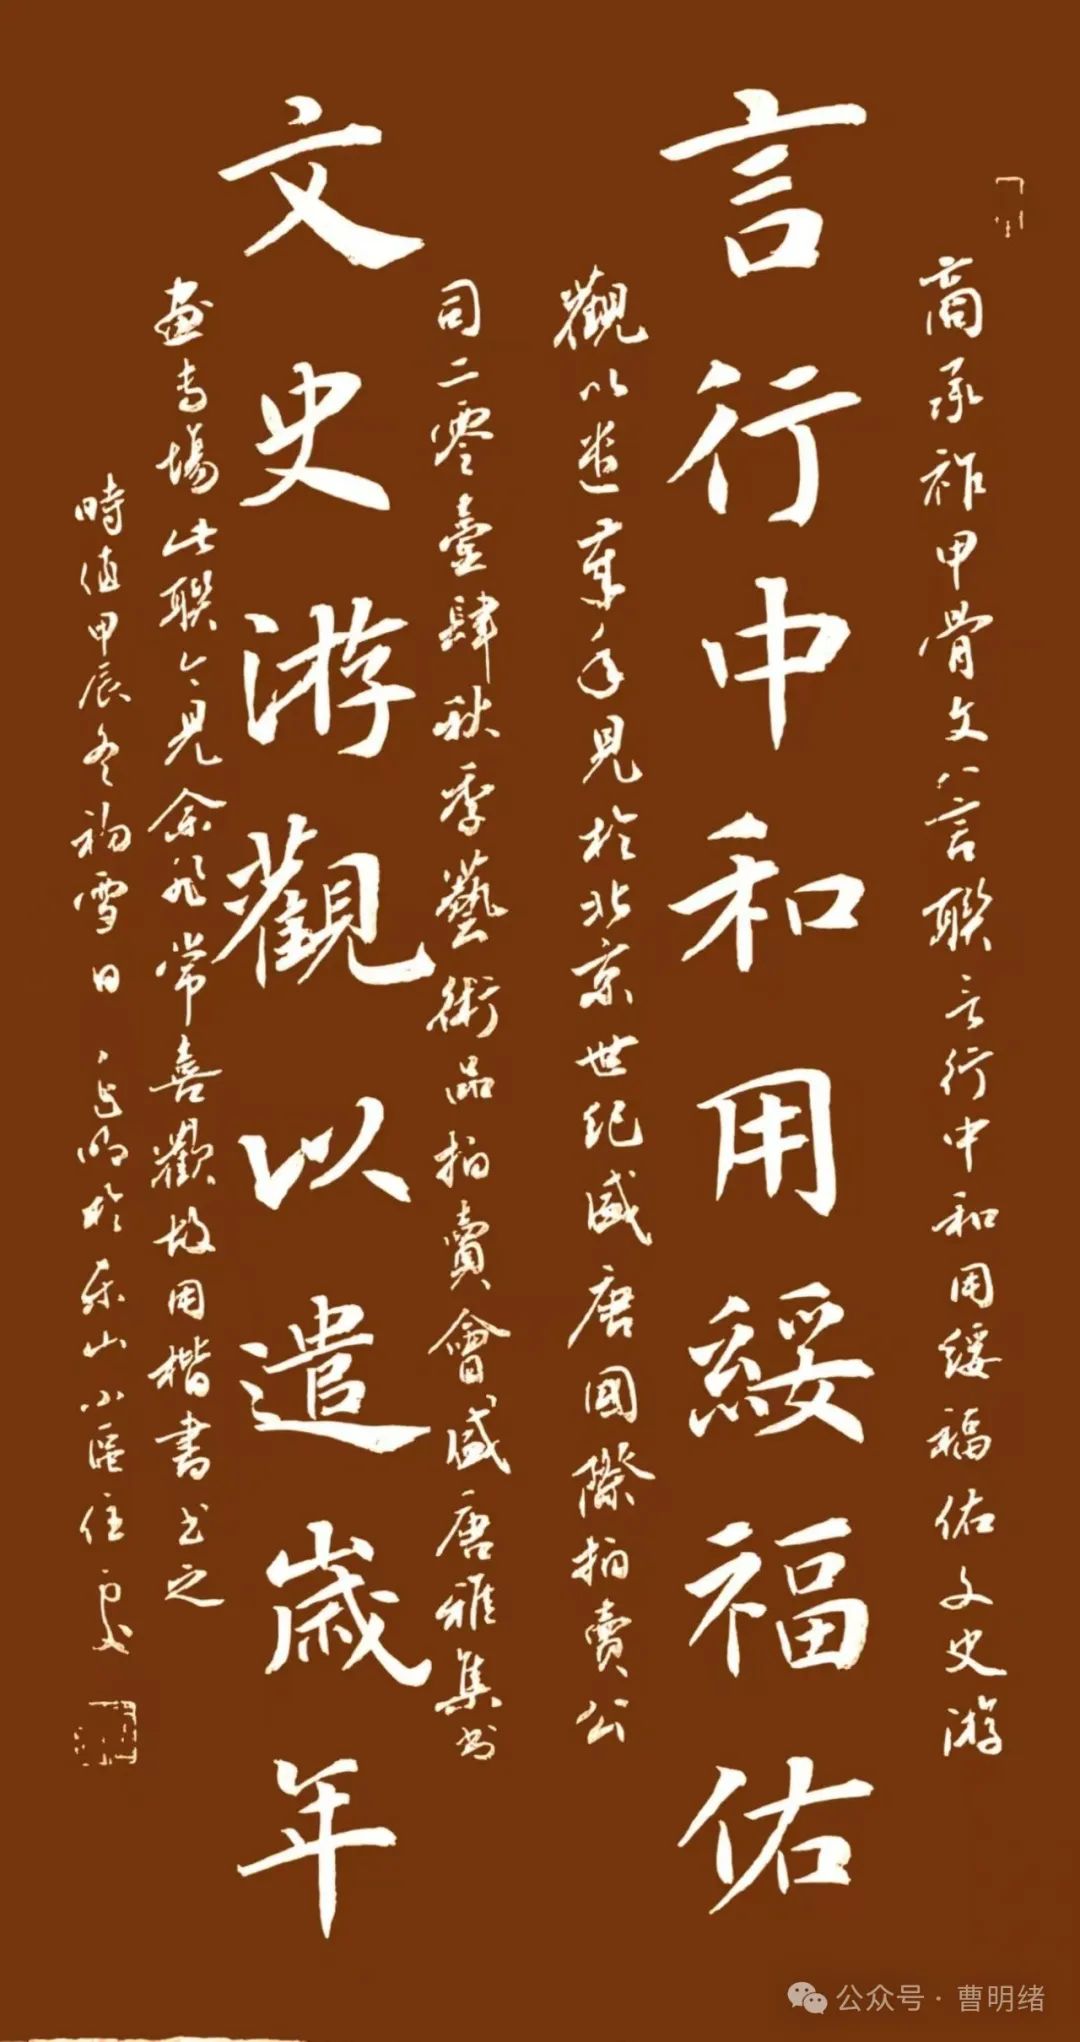 商承祚甲骨文八言聯言行中和用綏福佑文史游
言行中和用綏福佑
觀以遣歲年見於北京世纪盛唐國際拍賣公
司二零壹肆秋季藝術品拍賣會盛唐雅集书
文史游觀以遣歲年
画专場此联今見余非常喜歡故用楷書书之
時值甲辰冬初雪日 明於乐山小區住
公众号·曹明绪